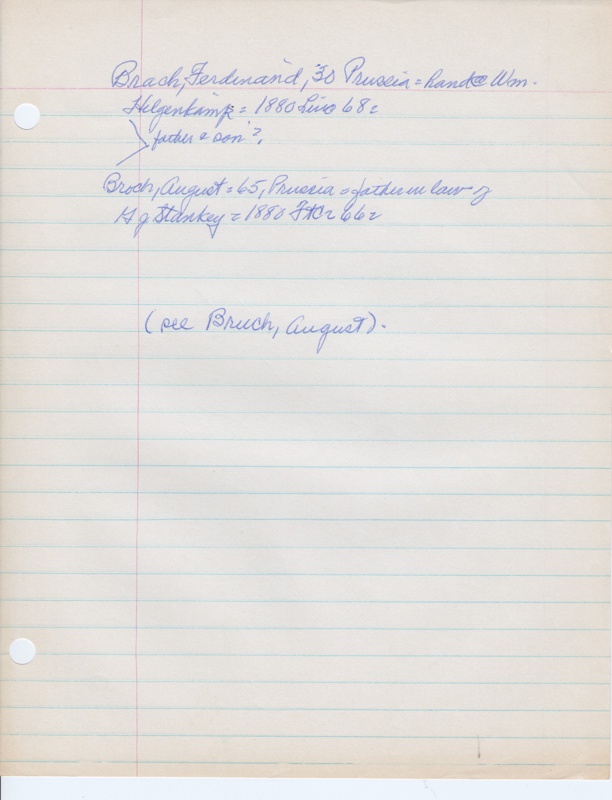 Brach, Ferdinand, 30 Prussia = hand @ Wm.
Hilgenkamp = 1880 Linc 68c
father & son?
Broch, August = 65, Prussia = father in law of
H g Stankey = 1880 66c
(see Bruch, August).